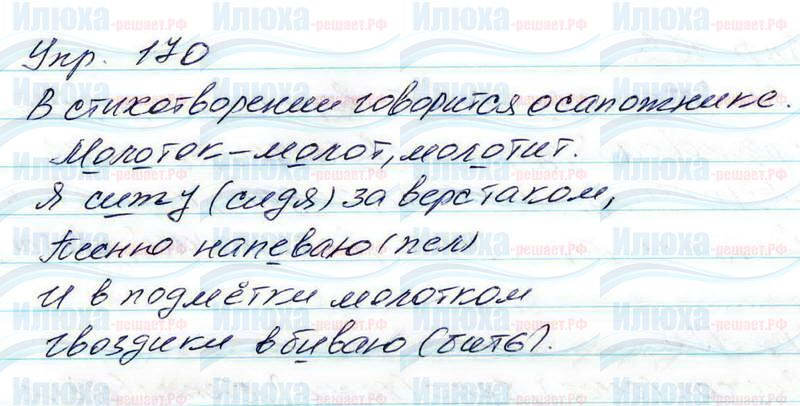 Упр. 170
В стихотворении говорится о сапожнике.
Молоток – молот, молотит.
Я сижу (сидя) за верстаком,
Песню напеваю (пел)
И в подмётки молотком
Гвоздики вбиваю (бить).